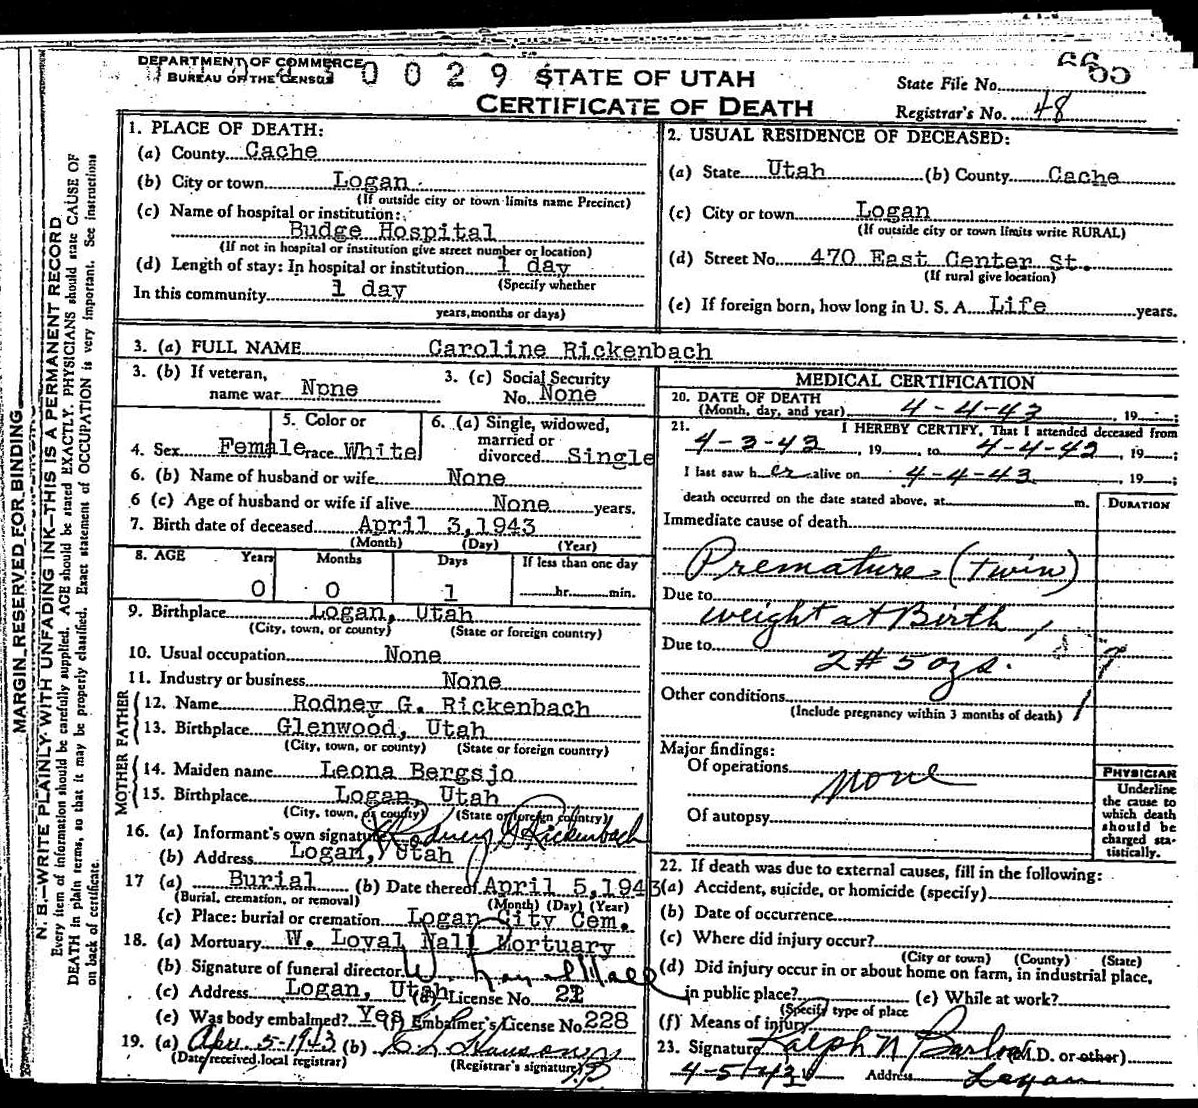 DEPARTMENT OF COMMERCE
BUREAU OF THE CENSUS
0 0 2 9
STATE OF UTAH
CERTIFICATE OF DEATH
State File No.
Registrar's No. 48
MARGIN RESERVED FOR BINDING
N. B.—WRITE PLAINLY WITH UNFADING INK—THIS IS A PERMANENT RECORD
Every item of information should be carefully supplied. AGE should be stated EXACTLY. PHYSICIANS should state CAUSE OF
DEATH in plain terms, so that it may be properly classified. Exact statement of OCCUPATION is very important. See instructions
on back of certificate.
1. PLACE OF DEATH:
(a) County Cache
(b) City or town Logan
(If outside city or town limits name Precinct)
(c) Name of hospital or institution:
Budge Hospital
(If not in hospital or institution give street number or location)
(d) Length of stay: In hospital or institution 1 day
(Specify whether
In this community 1 day
years, months or days)
2. USUAL RESIDENCE OF DECEASED:
(a) State Utah (b) County Cache
(c) City or town Logan
(If outside city or town limits write RURAL)
(d) Street No. 470 East Center St.
(If rural give location)
(e) If foreign born, how long in U. S. A. Life years.
3. (a) FULL NAME Caroline Rickenbach
3. (b) If veteran,
name war None
3. (c) Social Security
No. None
4. Sex Female
5. Color or
race White
6. (a) Single, widowed,
married or
divorced Single
6. (b) Name of husband or wife None
6 (c) Age of husband or wife if alive None years.
7. Birth date of deceased April 3, 1943
(Month) (Day) (Year)
8. AGE Years Months Days If less than one day
0 0 1 hr. min.
9. Birthplace Logan, Utah
(City, town, or county) (State or foreign country)
10. Usual occupation None
11. Industry or business None
FATHER
12. Name Rodney G. Rickenbach
13. Birthplace Glenwood, Utah
(City, town, or county) (State or foreign country)
MOTHER
14. Maiden name Leona Bergsjo
15. Birthplace Logan, Utah
(City, town, or county) (State or foreign country)
16. (a) Informant's own signature Rodney G Rickenbach
(b) Address Logan, Utah
17 (a) Burial (b) Date thereof April 5, 1943
(Burial, cremation, or removal) (Month) (Day) (Year)
(c) Place: burial or cremation Logan City Cem.
18. (a) Mortuary W. Loyal Hall Mortuary
(b) Signature of funeral director W. Loyal Hall
(c) Address Logan, Utah (d) License No. 21
(e) Was body embalmed? Yes (f) Embalmer's License No. 228
19. (a) Apr. 5-1943 (b)
(Date received local registrar) (Registrar's signature)
MEDICAL CERTIFICATION
20. DATE OF DEATH
(Month, day, and year) 4-4-43, 19
21. I HEREBY CERTIFY, That I attended deceased from
4-3-43, 19 to 4-4-43, 19 ;
I last saw her alive on 4-4-43, 19 ;
death occurred on the date stated above, at m.
DURATION
Immediate cause of death
Premature (Twin)
Due to
weight at Birth
Due to
2# 5 ozs.
Other conditions
(Include pregnancy within 3 months of death)
Major findings:
Of operations none
Of autopsy
PHYSICIAN
Underline
the cause to
which death
should be
charged sta-
tistically.
22. If death was due to external causes, fill in the following:
(a) Accident, suicide, or homicide (specify)
(b) Date of occurrence
(c) Where did injury occur?
(City or town) (County) (State)
(d) Did injury occur in or about home on farm, in industrial place,
in public place? (e) While at work?
(Specify type of place
(f) Means of injury
23. Signature Ralph N Barlow (M.D. or other)
4-5-43 19 Address Logan